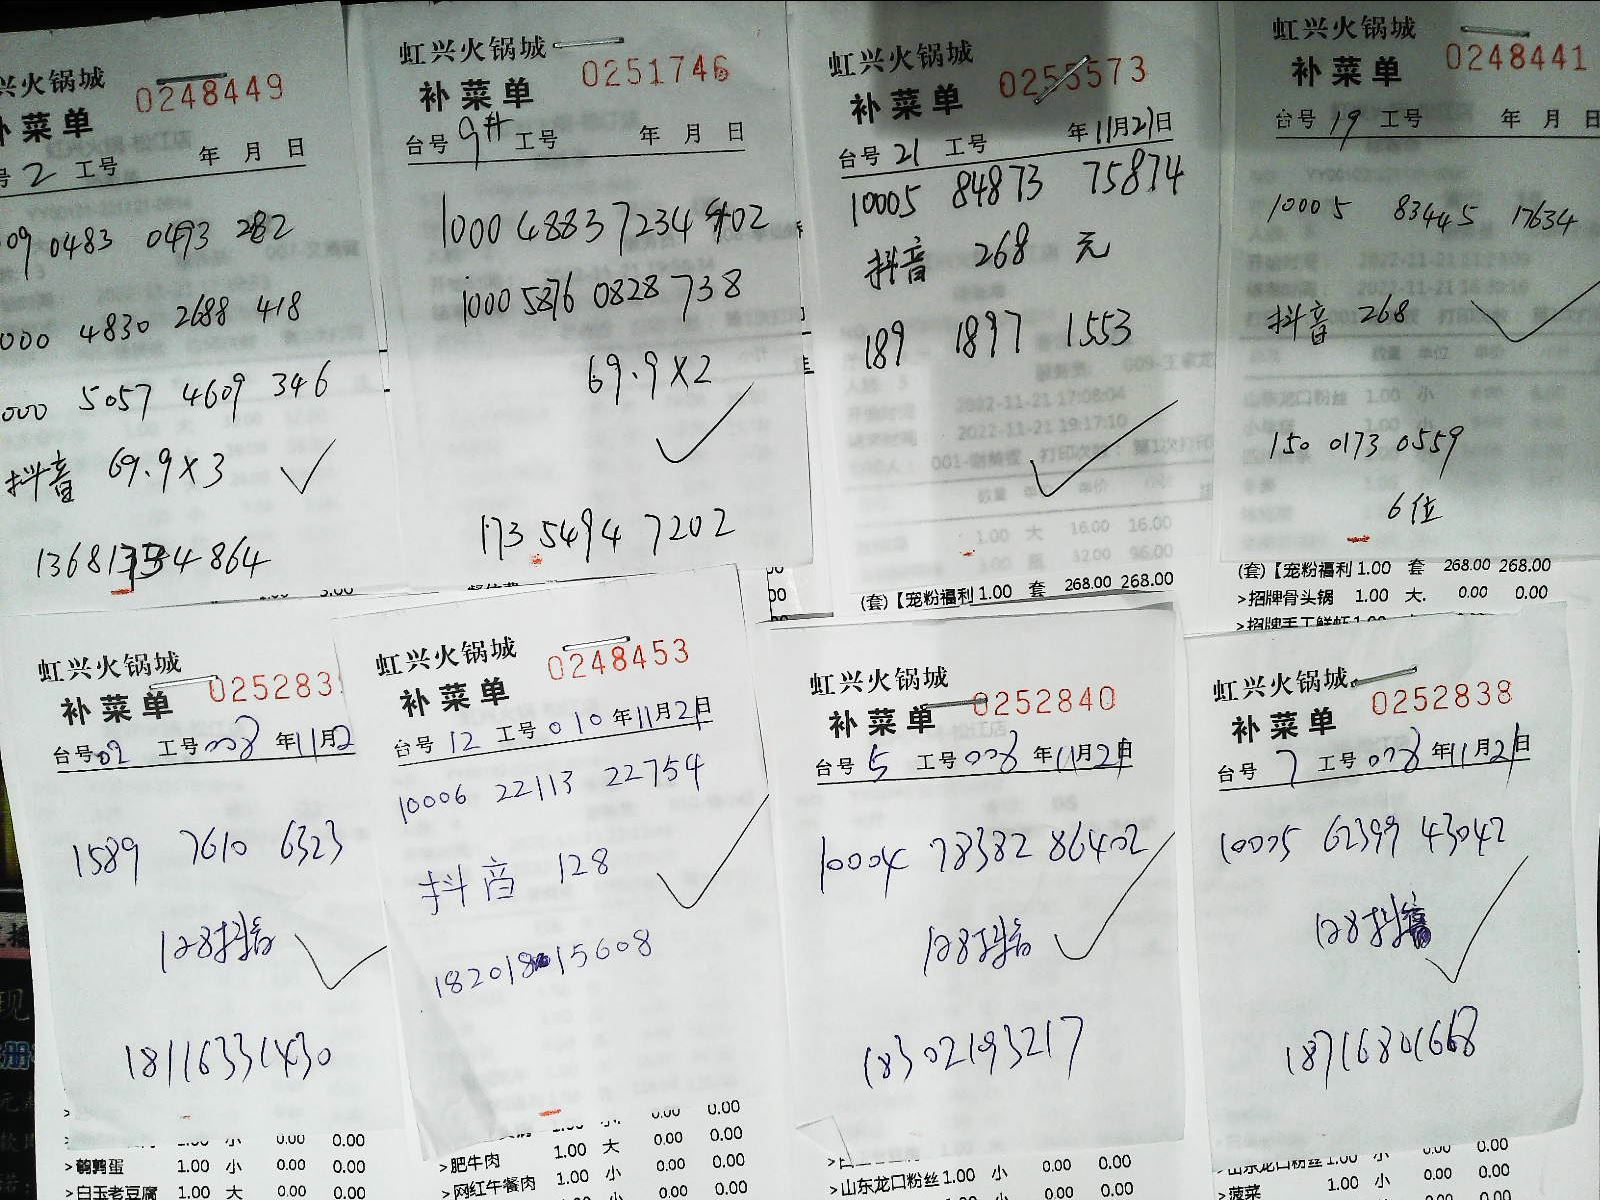 兴火锅城
0248449
补菜单
号 2 工号 年 月 日
09 0483 0493 282
000 4830 2688 418
000 5057 4609 346
抖音 69.9×3
虹兴火锅城
0251746
补菜单
台号 9# 工号 年 月 日
1000 4883 7234 402
1000 5876 0828 738
69.9×2
173 5494 7202
虹兴火锅城
0255573
补菜单
台号 21 工号 年 11月21日
10005 84873 75874
抖音 268 元
189 1897 1553
2022-11-21 17:08:04
2022-11-21 19:17:10
1.00 大 16.00 16.00
(套)【宠粉福利 1.00 套 268.00 268.00
虹兴火锅城
0248441
补菜单
台号 19 工号 年 月 日
10005 83445 17634
抖音 268
150 0173 0559
6位
(套)【宠粉福利 1.00 套 268.00 268.00
>招牌骨头锅 1.00 大. 0.00 0.00
>招牌手工鲜虾 1.00
虹兴火锅城
025283
补菜单
台号 02 工号 008 年 11月2
1589 7610 6323
128抖音
18116331430
1.00 小 0.00 0.00
>鹌鹑蛋 1.00 小 0.00 0.00
>白玉老豆腐 1.00 大 0.00 0.00
虹兴火锅城
0248453
补菜单
台号 12 工号 010 年 11月21日
10006 22113 22754
抖音 128
182018 15608
0.00 0.00
>肥牛肉 1.00 大 0.00 0.00
>网红午餐肉 1.00 小 0.00 0.00
虹兴火锅城
0252840
补菜单
台号 5 工号 008 年 11月21日
10004 78382 86402
128抖音
18302193217
>山东龙口粉丝 1.00 小 0.00 0.00
虹兴火锅城
0252838
补菜单
台号 7 工号 008 年 11月21日
10005 62399 43042
128抖音
18716801668
>山东龙口粉丝 1.00 小 0.00 0.00
>菠菜 1.00 小 0.00 0.00